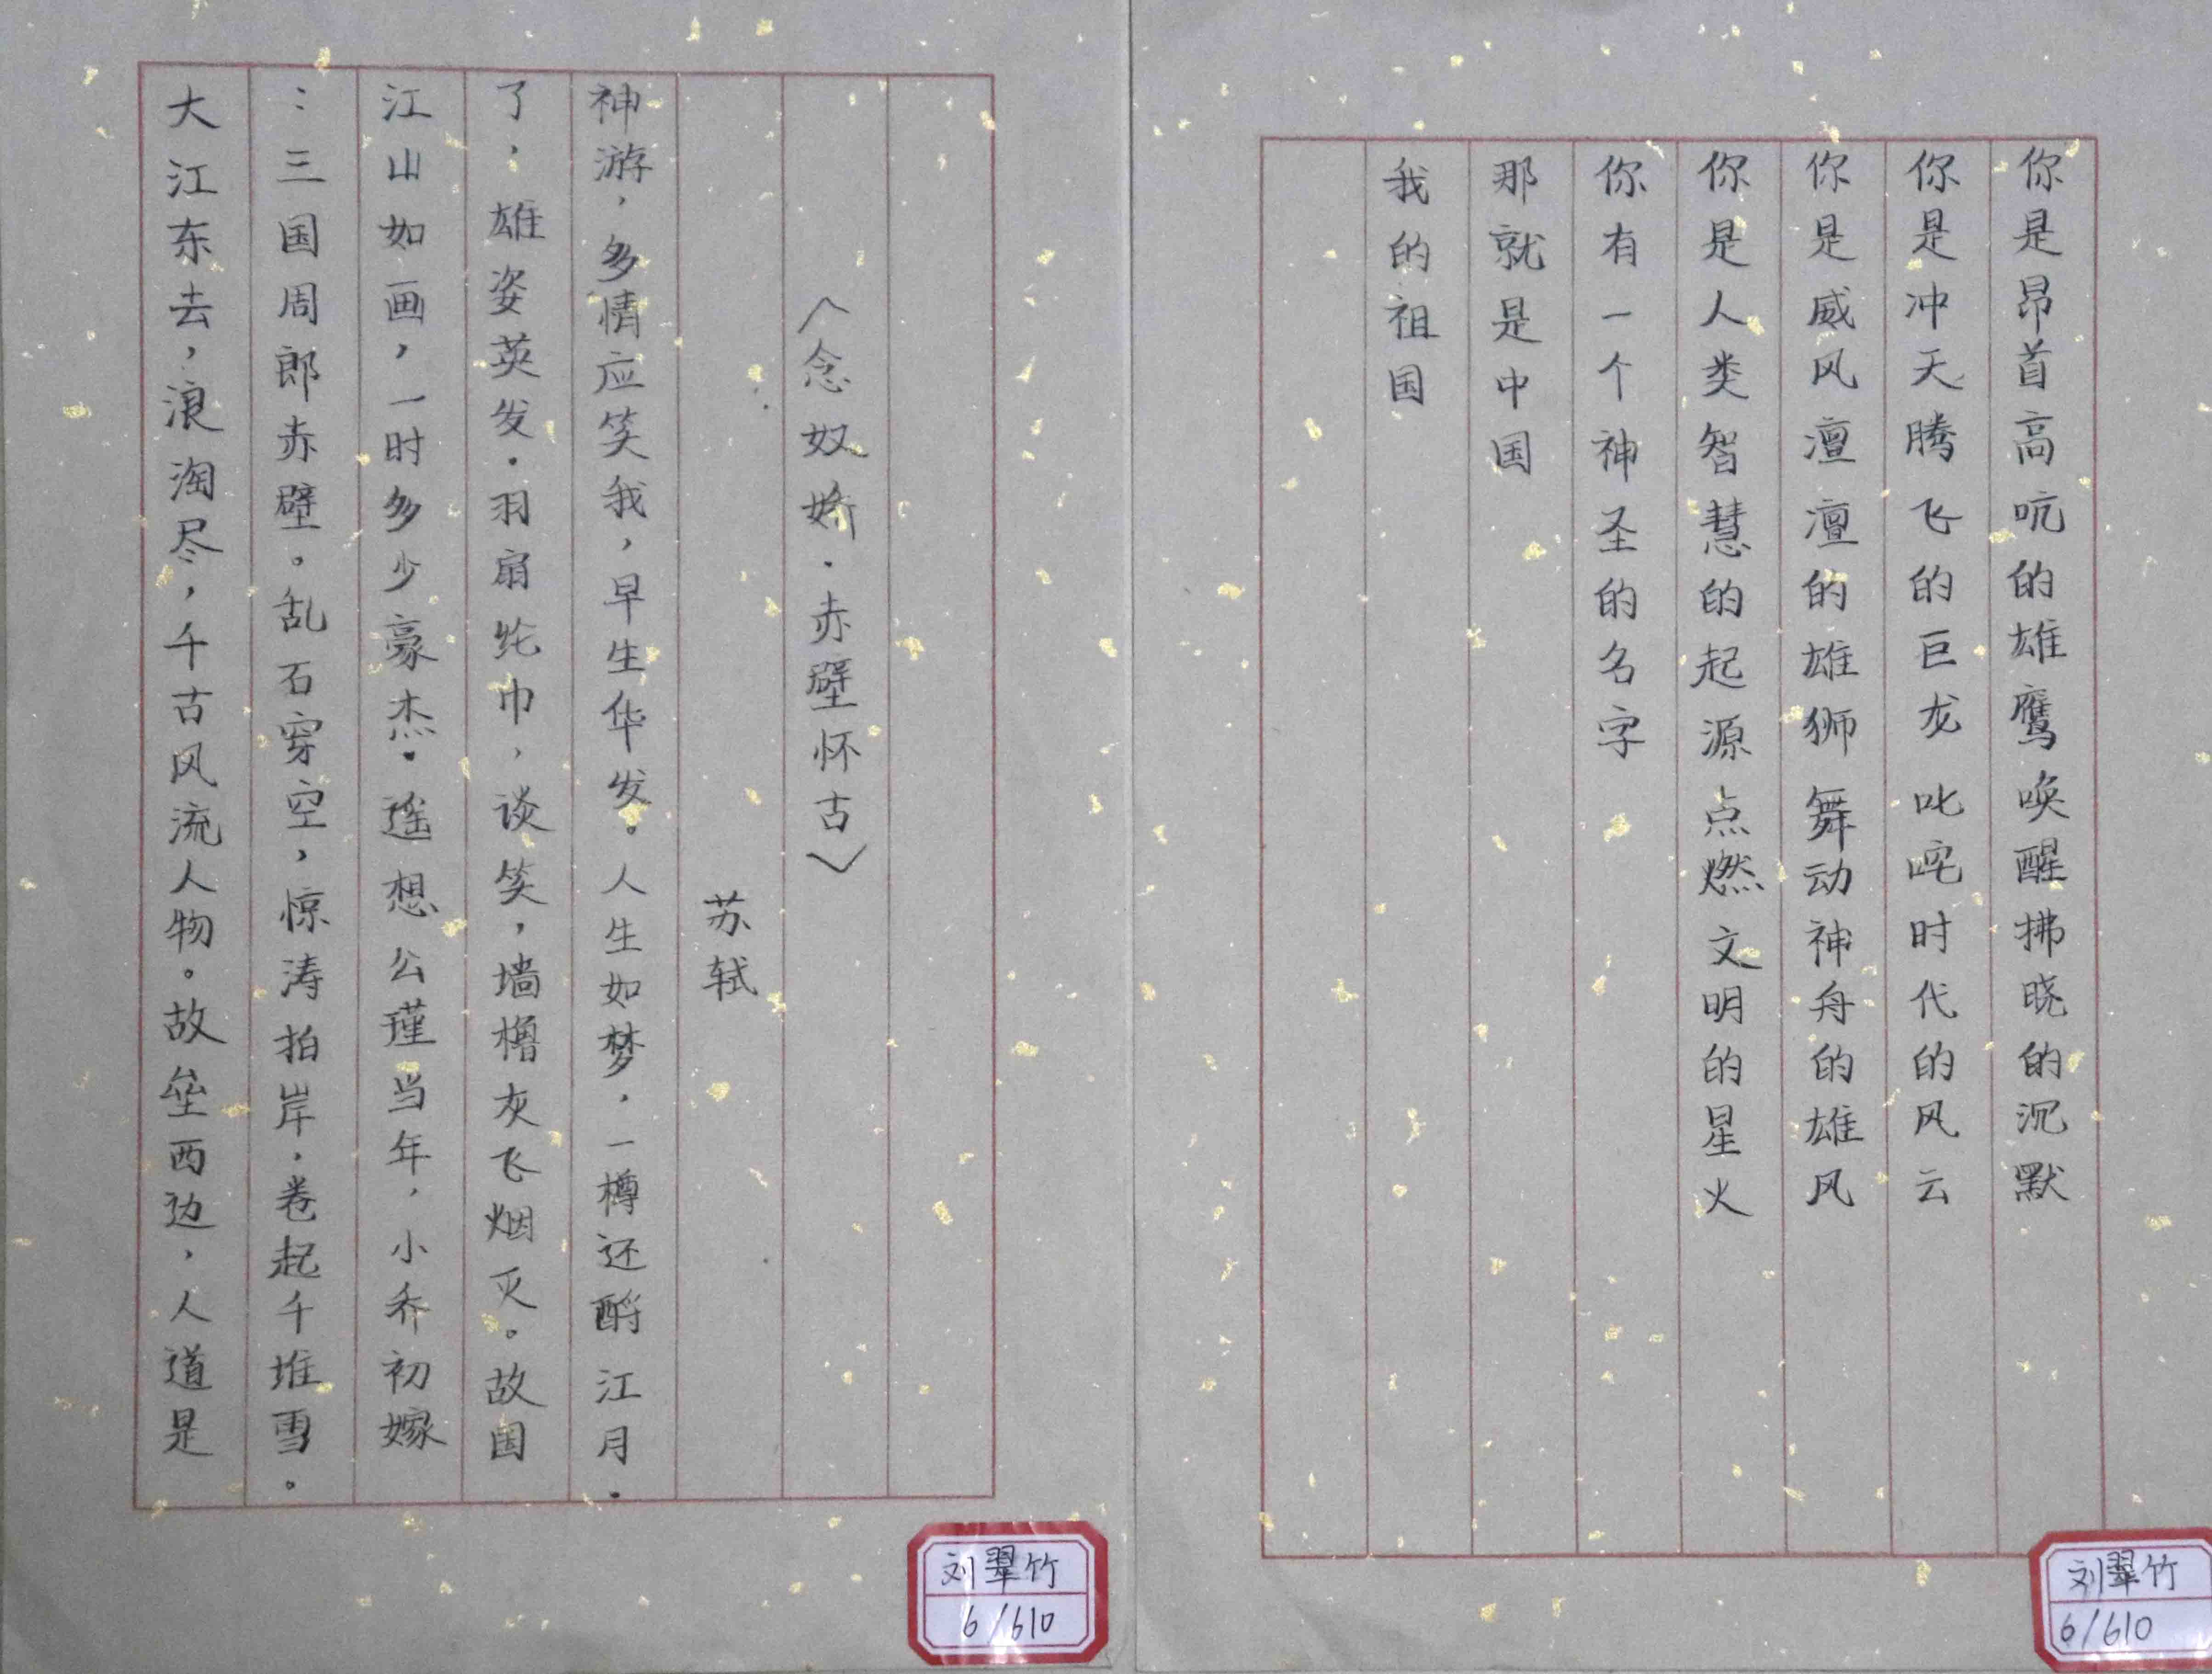 〈念奴娇·赤壁怀古〉
苏轼
大江东去，浪淘尽，千古风流人物。故垒西边，人道是
：三国周郎赤壁。乱石穿空，惊涛拍岸，卷起千堆雪。
江山如画，一时多少豪杰。遥想公瑾当年，小乔初嫁
了，雄姿英发。羽扇纶巾，谈笑，墙橹灰飞烟灭。故国
神游，多情应笑我，早生华发。人生如梦，一樽还酹江月。
刘翠竹
6/610
你是昂首高吭的雄鹰唤醒拂晓的沉默
你是冲天腾飞的巨龙叱咤时代的风云
你是威风澶澶的雄狮舞动神舟的雄风
你是人类智慧的起源点燃文明的星火
你有一个神圣的名字
那就是中国
我的祖国
刘翠竹
6/610